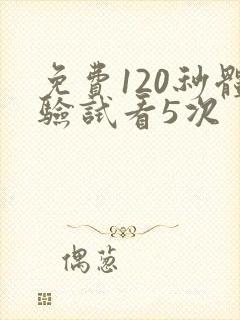 免費120秒體
驗試看5次
偶蔥